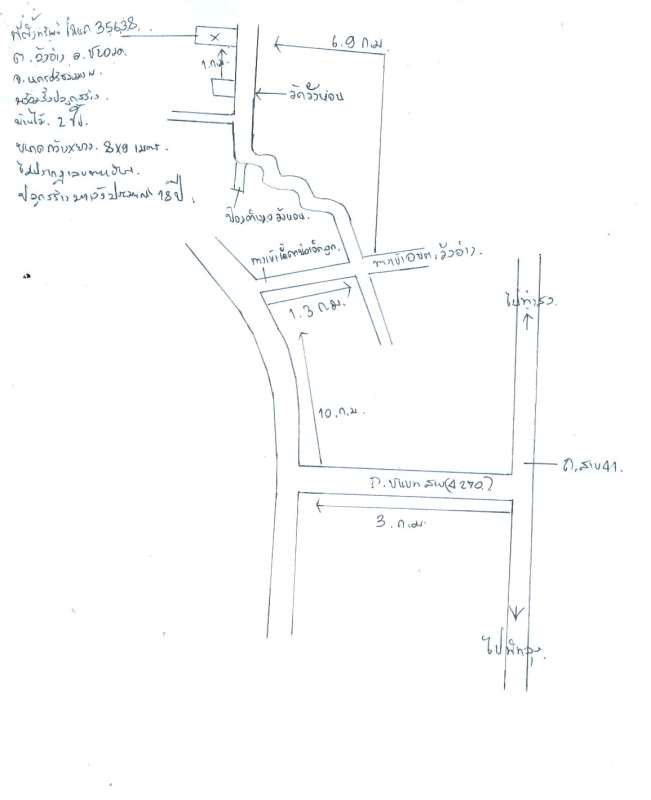 ที่ตั้งทรัพย์ โฉนด 35638.
ต. วังอ่าง อ. ชะอวด
จ. นครศรีธรรมราช
พร้อมสิ่งปลูกสร้าง.
บ้านไม้. 2 ชั้น.
ขนาดกว้างxยาว. 8x9 เมตร.
ไม่ปรากฏเลขทะเบียน.
ปลูกสร้างมาแล้วประมาณ 18 ปี.
x
6.9 ก.ม.
1. ก.ม.
วัดวังหอน
ป้อมตำรวจวังหอน.
ทางเข้า อบต. วังอ่าง.
1.3 ก.ม.
ไปทุ่งสง.
10. ก.ม.
ถ. สาย 41.
ถ. ชนบท สาย (4270)
3. ก.ม.
ไปพัทลุง.